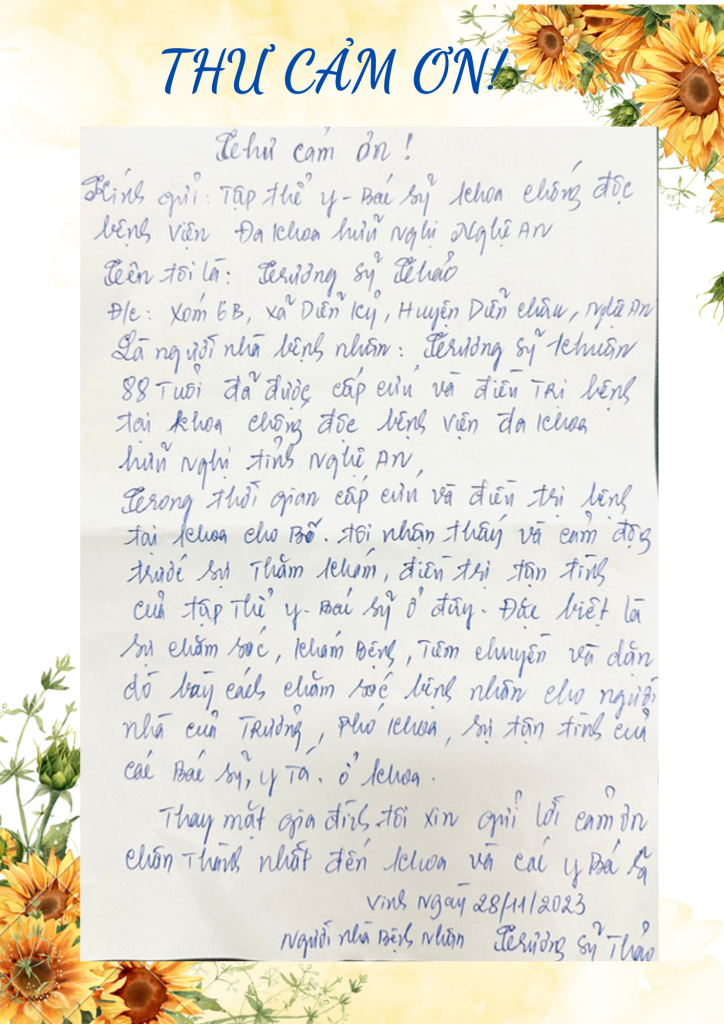 THƯ CẢM ƠN!
Thư cảm ơn!
Kính gửi: Tập thể y - Bác sỹ khoa chống độc
bệnh viện Đa khoa hữu nghị Nghệ An
Tên tôi là: Trương Sỹ Thảo
Đ/c: Xóm 6B, xã Diễn Kỷ, Huyện Diễn Châu, Nghệ An
Là người nhà bệnh nhân: Trương Sỹ Khuân
88 Tuổi đã được cấp cứu và điều Trị bệnh
tại khoa chống độc bệnh viện đa khoa
hữu nghị tỉnh Nghệ An,
Trong thời gian cấp cứu và điều trị bệnh
tại khoa cho Bố. tôi nhận thấy và cảm động
trước sự Thăm khám, điều trị tận tình
của tập Thể y - Bác sỹ ở đây. Đặc biệt là
sự chăm sóc, khám Bệnh, Tiêm chuyền và dặn
dò bày cách chăm sóc bệnh nhân cho người
nhà của Trưởng, Phó khoa, sự tận tình của
các Bác sỹ, y Tá. ở khoa.
Thay mặt gia đình tôi xin gửi lời cảm ơn
chân Thành nhất đến khoa và các y Bác sỹ
Vinh Ngày 28/11/2023
Người nhà Bệnh Nhân Trương Sỹ Thảo